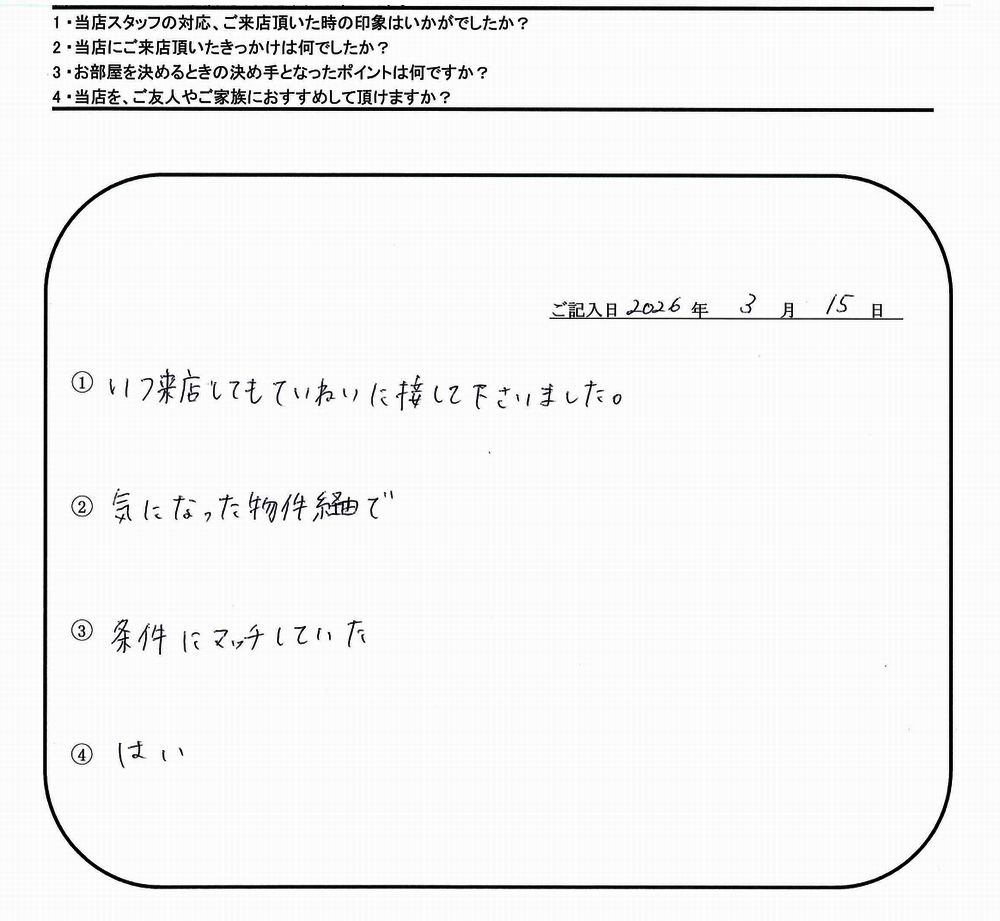 1・当店スタッフの対応、ご来店頂いた時の印象はいかがでしたか？
2・当店にご来店頂いたきっかけは何でしたか？
3・お部屋を決めるときの決め手となったポイントは何ですか？
4・当店を、ご友人やご家族におすすめして頂けますか？
ご記入日 2026 年 3 月 15 日
① いつ来店してもていねいに接して下さいました。
② 気になった物件経由で
③ 条件にマッチしていた
④ はい